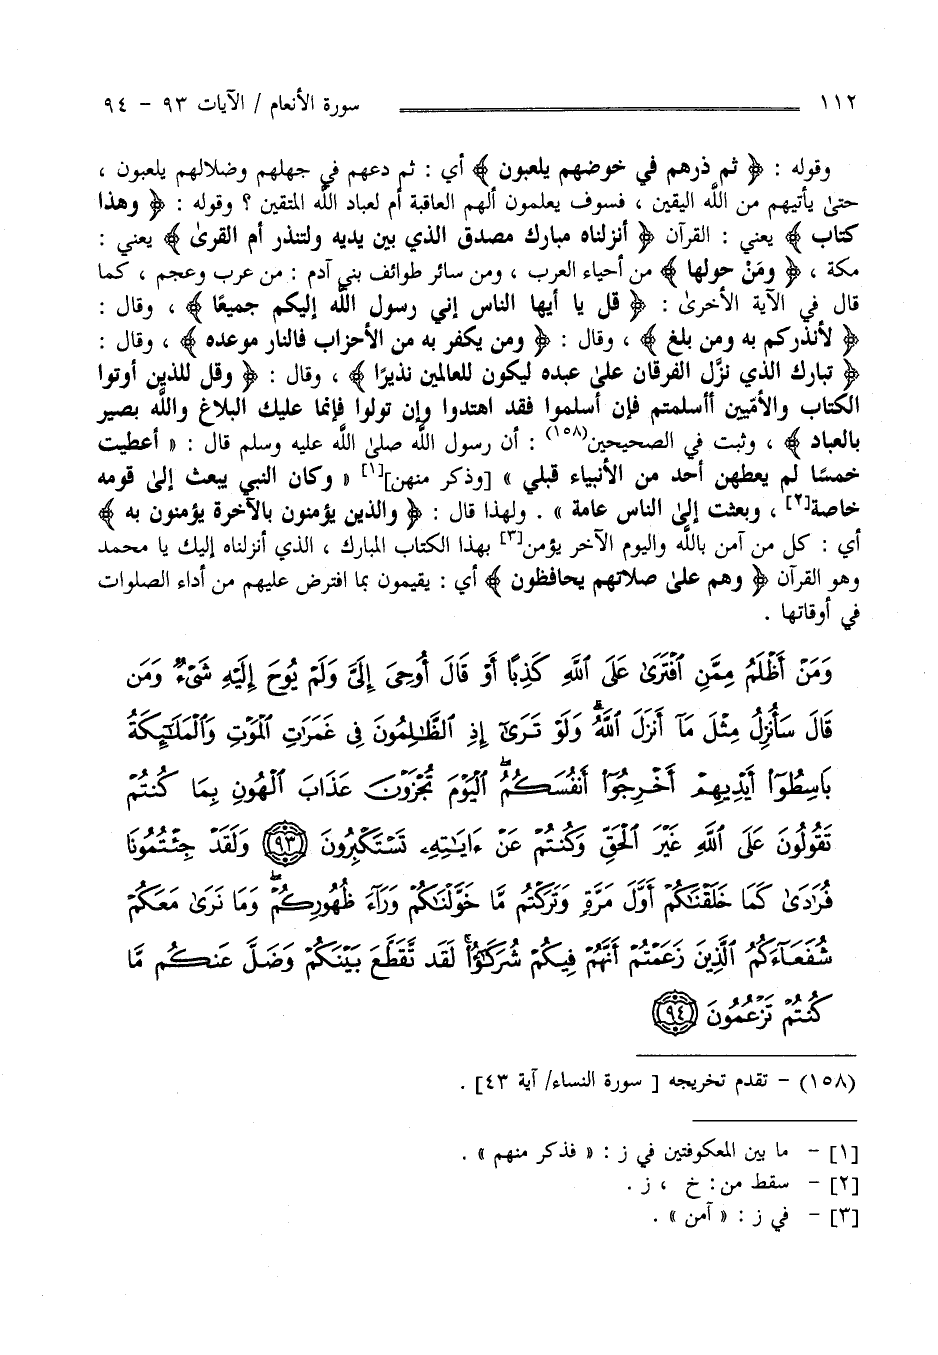 ١١٢ سورة الأنعام / الآيات ٩٣ - ٩٤
وقوله : ﴿ ثم ذرهم في خوضهم يلعبون ﴾ أي : ثم دعهم في جهلهم وضلالهم يلعبون ،
حتىٰ يأتيهم من اللَّه اليقين ، فسوف يعلمون ألهم العاقبة أم لعباد اللَّه المتقين ؟ وقوله : ﴿ وهذا
كتاب ﴾ يعني : القرآن ﴿ أنزلناه مبارك مصدق الذي بين يديه ولتنذر أم القرىٰ ﴾ يعني :
مكة ، ﴿ ومَنْ حولها ﴾ من أحياء العرب ، ومن سائر طوائف بني آدم : من عرب وعجم ، كما
قال في الآية الأخرىٰ : ﴿ قل يا أيها الناس إني رسول اللَّه إليكم جميعًا ﴾ ، وقال :
﴿ لأنذركم به ومن بلغ ﴾ ، وقال : ﴿ ومن يكفر به من الأحزاب فالنار موعده ﴾ ، وقال :
﴿ تبارك الذي نزَّل الفرقان علىٰ عبده ليكون للعالمين نذيرًا ﴾ ، وقال : ﴿ وقل للذين أوتوا
الكتاب والأمّيين أأسلمتم فإن أسلموا فقد اهتدوا وإن تولوا فإنما عليك البلاغ واللَّه بصير
بالعباد ﴾ ، وثبت في الصحيحين(١٥٨) : أن رسول اللَّه صلىٰ اللَّه عليه وسلم قال : « أعطيت
خمسًا لم يعطهن أحد من الأنبياء قبلي » [وذكر منهن][١] « وكان النبي يبعث إلىٰ قومه
خاصة[٢] ، وبعثت إلىٰ الناس عامة » . ولهذا قال : ﴿ والذين يؤمنون بالآخرة يؤمنون به ﴾
أي : كل من آمن باللَّه واليوم الآخر يؤمن[٣] بهذا الكتاب المبارك ، الذي أنزلناه إليك يا محمد
وهو القرآن ﴿ وهم علىٰ صلاتهم يحافظون ﴾ أي : يقيمون بما افترض عليهم من أداء الصلوات
في أوقاتها .
وَمَنْ أَظْلَمُ مِمَّنِ ٱفْتَرَىٰ عَلَى ٱللَّهِ كَذِبًا أَوْ قَالَ أُوحِىَ إِلَىَّ وَلَمْ يُوحَ إِلَيْهِ شَىْءٌ وَمَن
قَالَ سَأُنزِلُ مِثْلَ مَآ أَنزَلَ ٱللَّهُ ۗ وَلَوْ تَرَىٰٓ إِذِ ٱلظَّـٰلِمُونَ فِى غَمَرَٰتِ ٱلْمَوْتِ وَٱلْمَلَـٰٓئِكَةُ
بَاسِطُوٓا۟ أَيْدِيهِمْ أَخْرِجُوٓا۟ أَنفُسَكُمُ ۖ ٱلْيَوْمَ تُجْزَوْنَ عَذَابَ ٱلْهُونِ بِمَا كُنتُمْ
تَقُولُونَ عَلَى ٱللَّهِ غَيْرَ ٱلْحَقِّ وَكُنتُمْ عَنْ ءَايَـٰتِهِۦ تَسْتَكْبِرُونَ ﴿٩٣﴾ وَلَقَدْ جِئْتُمُونَا
فُرَٰدَىٰ كَمَا خَلَقْنَـٰكُمْ أَوَّلَ مَرَّةٍ وَتَرَكْتُم مَّا خَوَّلْنَـٰكُمْ وَرَآءَ ظُهُورِكُمْ ۖ وَمَا نَرَىٰ مَعَكُمْ
شُفَعَآءَكُمُ ٱلَّذِينَ زَعَمْتُمْ أَنَّهُمْ فِيكُمْ شُرَكَـٰٓؤُا۟ ۚ لَقَد تَّقَطَّعَ بَيْنَكُمْ وَضَلَّ عَنكُم مَّا
كُنتُمْ تَزْعُمُونَ ﴿٩٤﴾
(١٥٨) - تقدم تخريجه [ سورة النساء/ آية ٤٣] .
[١] - ما بين المعكوفتين في ز : « فذكر منهم » .
[٢] - سقط من: خ ، ز .
[٣] - في ز : « آمن » .